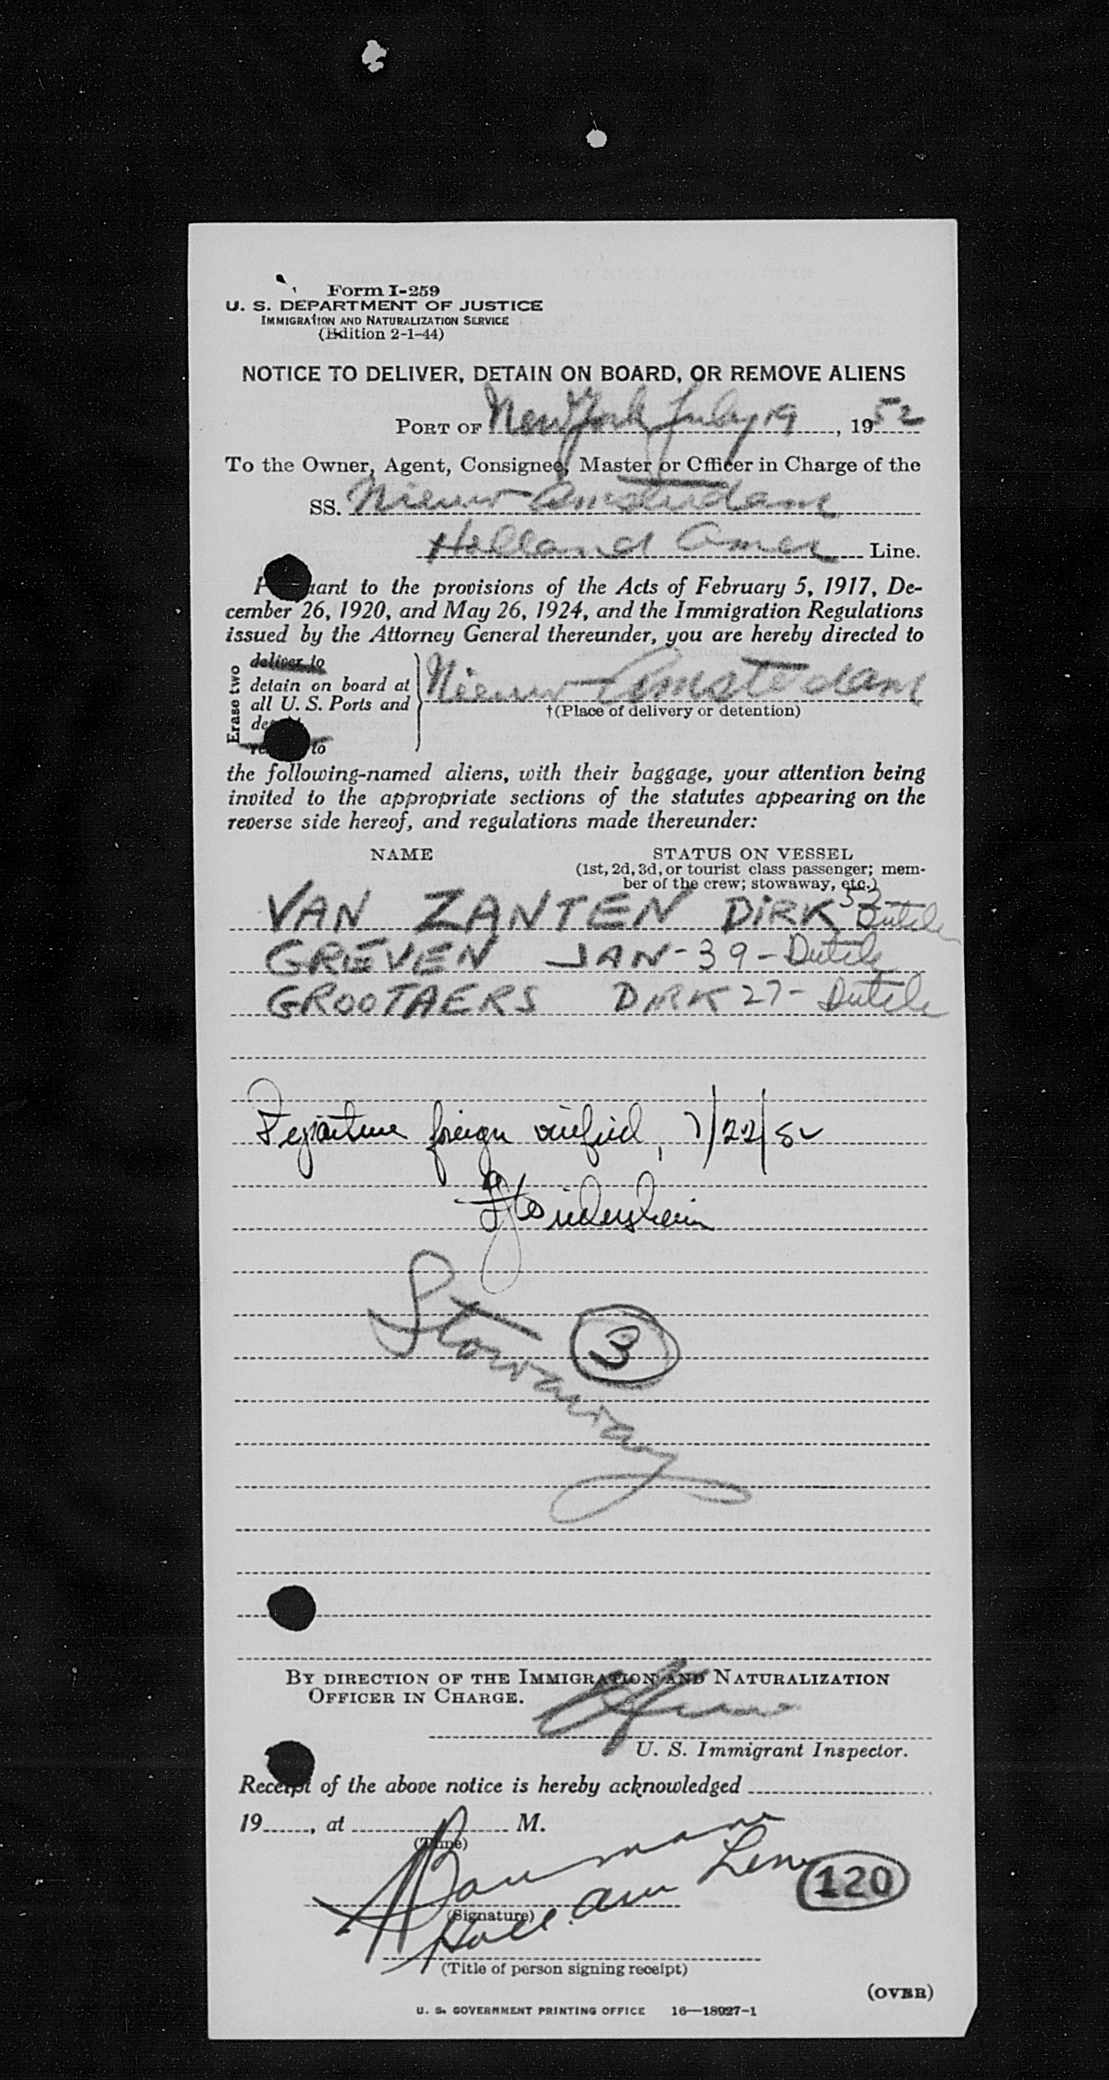 Form I-259
U. S. DEPARTMENT OF JUSTICE
IMMIGRATION AND NATURALIZATION SERVICE
(Edition 2-1-44)
NOTICE TO DELIVER, DETAIN ON BOARD, OR REMOVE ALIENS
PORT OF New York July 19, 1952
To the Owner, Agent, Consignee, Master or Officer in Charge of the
SS. Nieuw Amsterdam
Holland Amer Line.
Pursuant to the provisions of the Acts of February 5, 1917, De-
cember 26, 1920, and May 26, 1924, and the Immigration Regulations
issued by the Attorney General thereunder, you are hereby directed to
Erase two
deliver to
detain on board at
all U. S. Ports and
to
Nieuw Amsterdam
†(Place of delivery or detention)
the following-named aliens, with their baggage, your attention being
invited to the appropriate sections of the statutes appearing on the
reverse side hereof, and regulations made thereunder:
NAME STATUS ON VESSEL
(1st, 2d, 3d, or tourist class passenger; mem-
ber of the crew; stowaway, etc.)
VAN ZANTEN DIRK 53 Dutch
GREVEN JAN - 39 - Dutch
GROOTAERS DIRK 27 - Dutch
Departure foreign verified, 7/22/52
Stowaway
3
BY DIRECTION OF THE IMMIGRATION AND NATURALIZATION
OFFICER IN CHARGE.
U. S. Immigrant Inspector.
Receipt of the above notice is hereby acknowledged
19, at M.
(Time)
(Signature)
Holl. Am Line
120
(Title of person signing receipt)
(OVER)
U. S. GOVERNMENT PRINTING OFFICE 16—18927-1